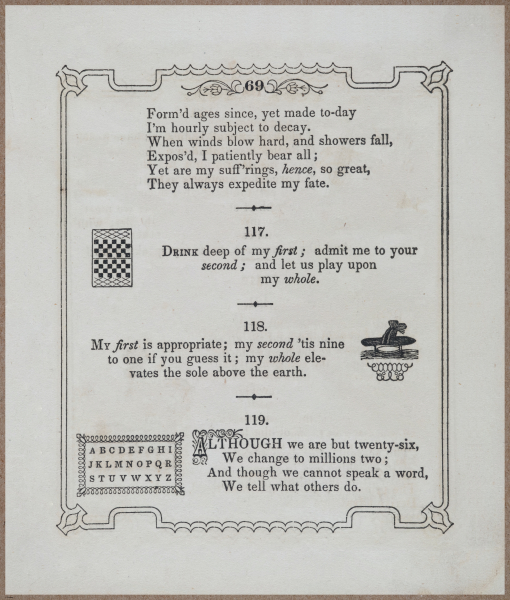 69
Form'd ages since, yet made to-day
I'm hourly subject to decay.
When winds blow hard, and showers fall,
Expos'd, I patiently bear all;
Yet are my suff'rings, hence, so great,
They always expedite my fate.
117.
DRINK deep of my first; admit me to your
second; and let us play upon
my whole.
118.
MY first is appropriate; my second 'tis nine
to one if you guess it; my whole ele-
vates the sole above the earth.
119.
A B C D E F G H I
J K L M N O P Q R
S T U V W X Y Z
ALTHOUGH we are but twenty-six,
We change to millions two;
And though we cannot speak a word,
We tell what others do.